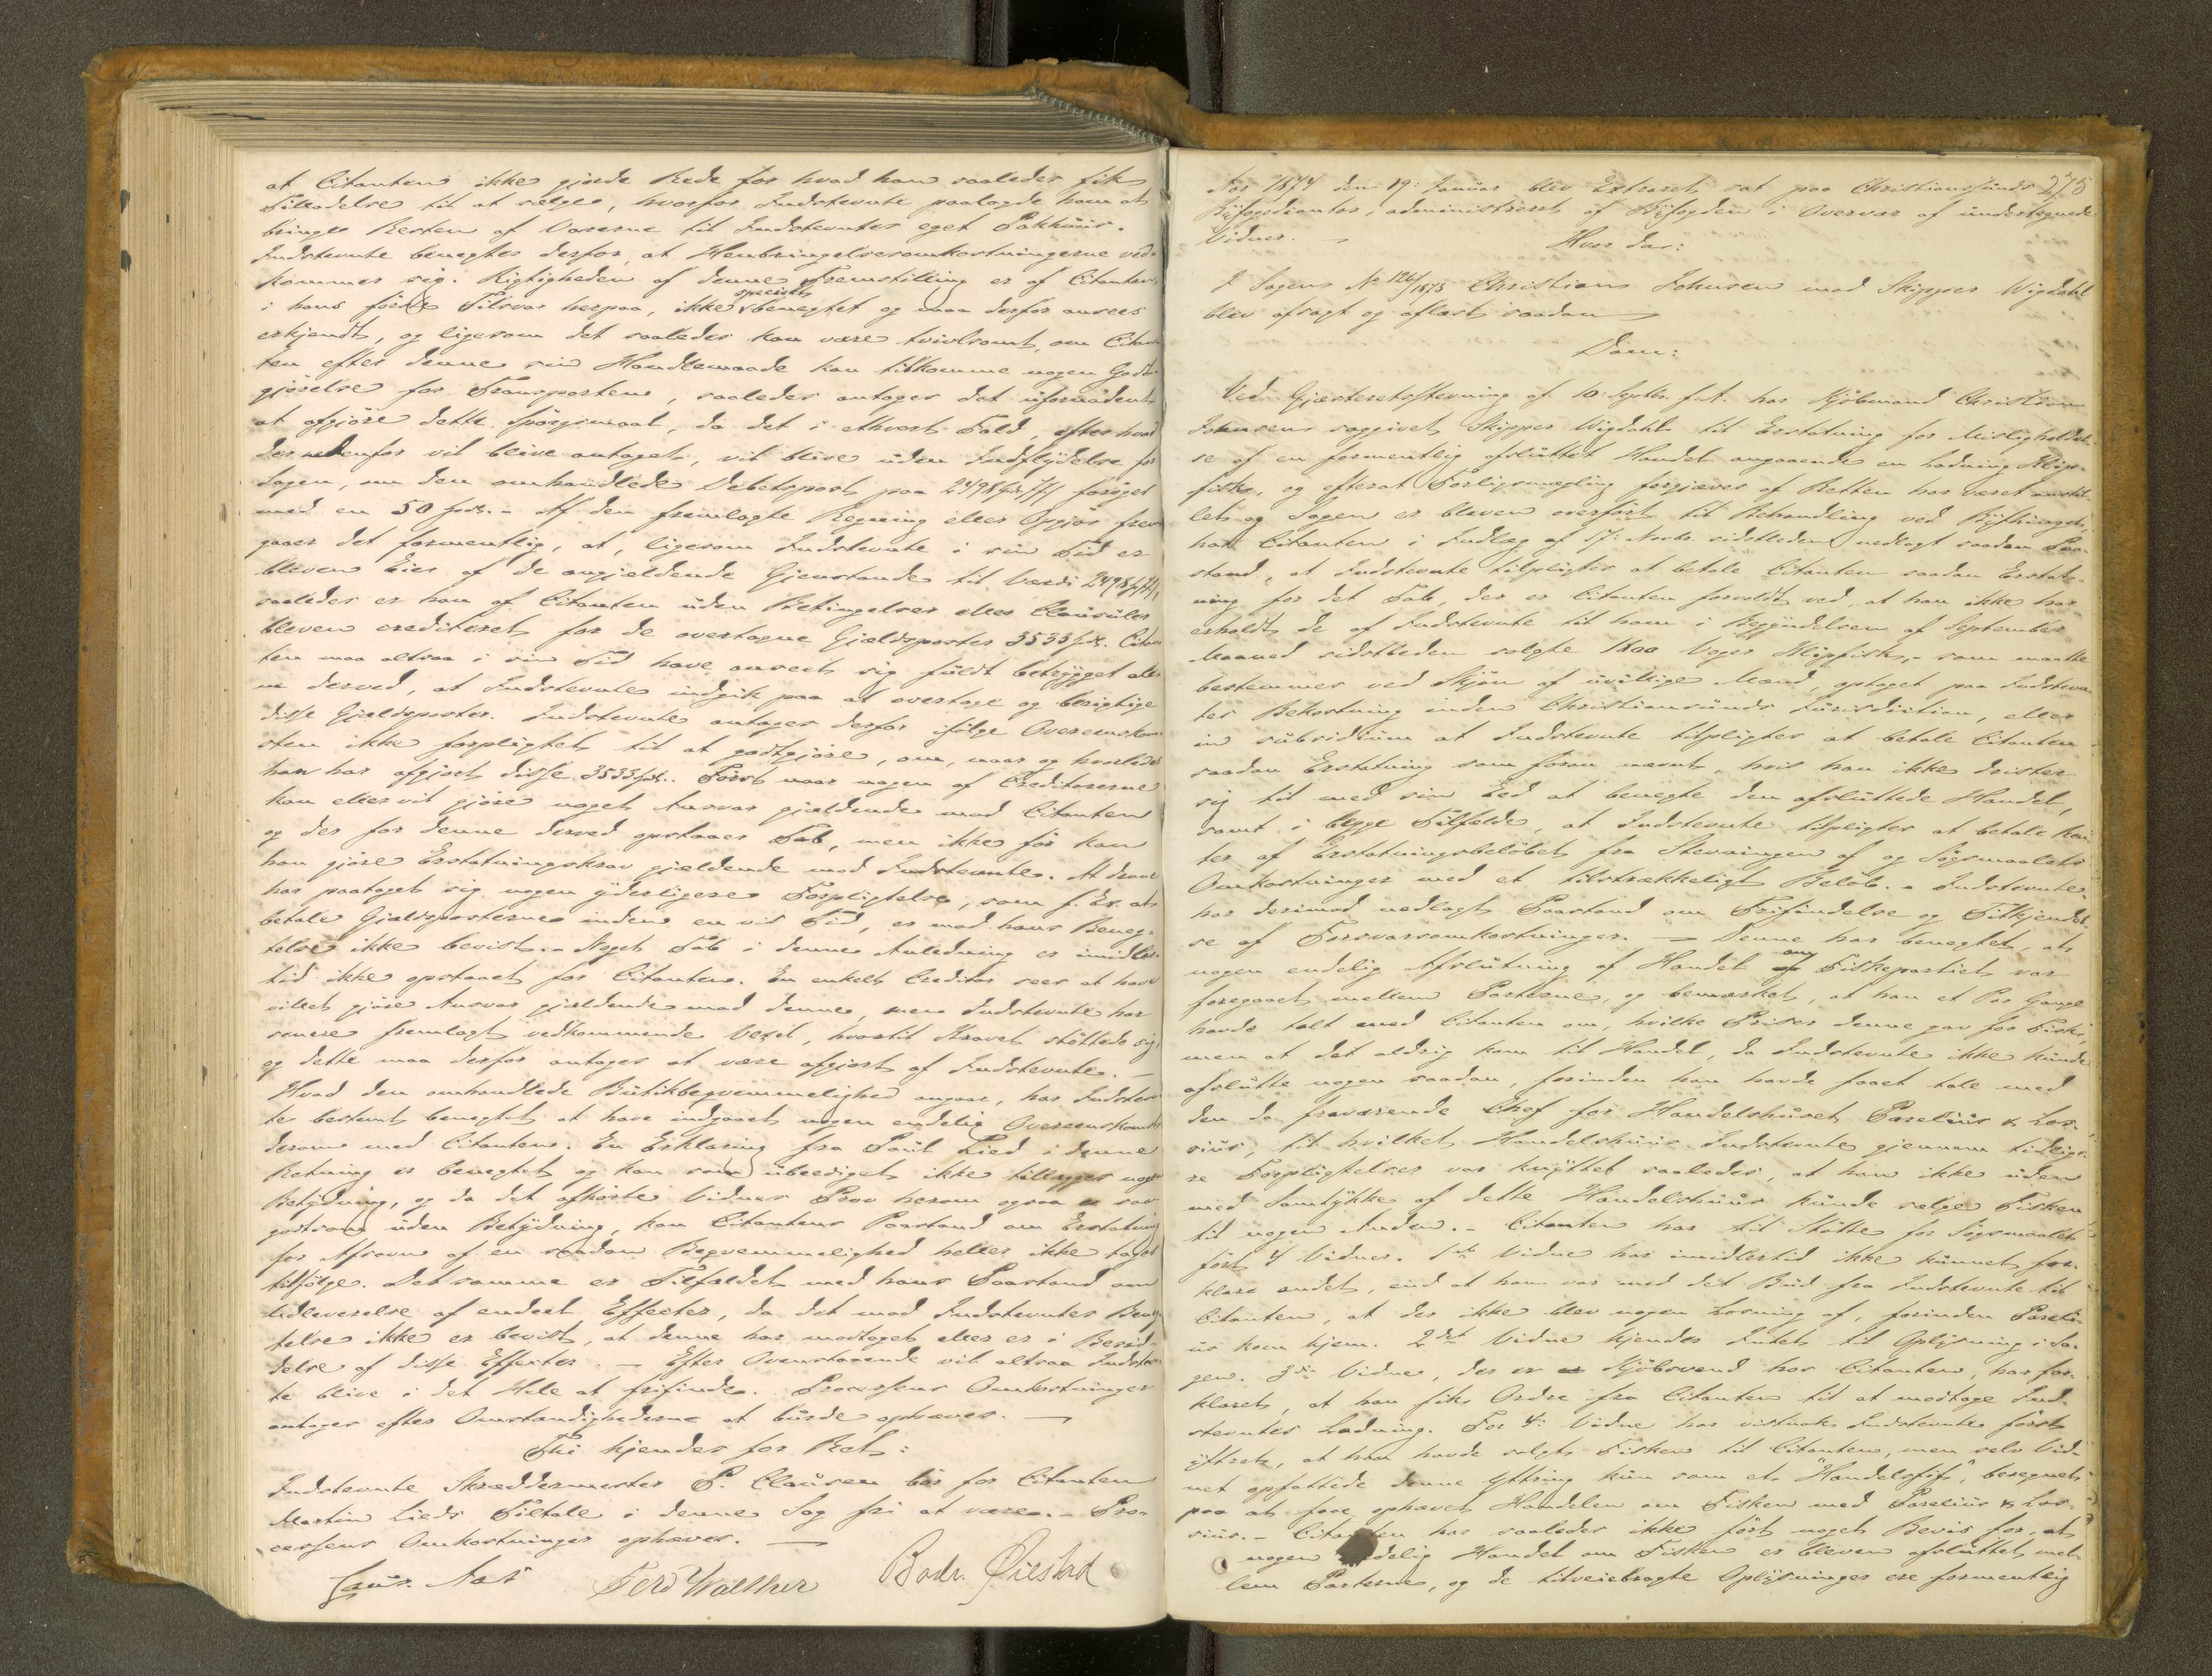 at Citanten ikke gjorde Rede for hvad han saaledes fik
Tilladelse til at sælge, hvorfor Indstevnte paalagde ham at
bringe Resten af Varerne til Indstevntes eget Pakhuus.
Indstevnte benegter derfor, at Henbringelsesomkostningerne ved-
kommer sig. Rigtigheden af denne Fremstilling er af Citanten,
i hans første Tilsvar herpaa, ikke specielt benegtet og maa derfor ansees
erkjendt, og ligesom det saaledes kan være tvivlsomt, om Citan-
ten efter denne sin Handlemaade kan tilkomme nogen Godt-
gjørelse for Transporten, saaledes antages det ufornødent
at afgjøre dette Spørgsmaal, da det i ethvert Fald, efter hvad
der nedenfor vil blive antaget, vil blive uden Indflydelse for
Sagen, om den omhandlede Debetspost paa 2498 forøges
med en 50 Spdl. - Af den fremlagte Regning eller Opgjør frem-
gaaer det formentlig, at, ligesom Indstevnte i sin Tid er
bleven Eier af de angjældende Gjenstande til Værdi 2498
saaledes er han af Citanten uden Betingelser eller Clausuler
bleven crediteret for de overtagne Gjældsposter 3533 Spdl. Citan-
ten maa altsaa i sin Tid have anseet sig fuldt betrygget alle-
ne derved, at Indstevnte indgik paa at overtage og berigtige
disse Gjældsposter. Indstevnte antages derfor ifølge Overenskom-
sten ikke forpligtet til at godtgjøre, om, naar og hvorledes
han har afgjort disse 3533 Spdl. Først naar nogen af Creditorerne
kan eller vil gjøre noget Ansvar gjældende mod Citanten
og der for denne derved opstaaer Tab, men ikke før kan
han gjøre Erstatningskrav gjældende mod Indstevnte. At denne
har paataget sig nogen yderligere Forpligtelse, som f. Ex. at
betale Gjældsposterne inden en vis Tid, er mod hans Beneg-
telse ikke bevist. - Noget Tab i denne Anledning er imidler-
tid ikke opstaaet for Citanten. En enkelt Creditor sees at have
villet gjøre Ansvar gjældende mod denne, men Indstevnte har
senere fremlagt vedkommende Vexel, hvortil Kravet støttede sig,
og dette maa derfor antages at være afgjort af Indstevnte. -
Hvad den omhandlede Butikbeqvemmelighed angaar, har Indstevn-
te bestemt benegtet at have indgaaet nogen endelig Overenskomst
derom med Citanten. En Erklæring fra Poul Lied i denne
Retning er benegtet og kan som ubeediget ikke tillægges nogen
Betydning, og da det afhørte Vidnes Prov herom ogsaa er saa
godtsom uden Betydning, kan Citantens Paastand om Erstatning
for Afsavn af en saadan Beqvemmelighed heller ikke tages
tilfølge. Det samme er Tilfældet med hans Paastand om
Udleverelse af endeel Effecter, da det mod Indstevntes Beneg-
telse ikke er bevist, at denne har modtaget eller er i Besid-
delse af disse Effecter. - Efter Ovenstaaende vil altsaa Indstevn-
te blive i det Hele at frifinde. Processens Omkostninger
antages efter Omstændighederne at burde ophæves. -
Thi kjendes for Ret:
Indstevnte Skræddermester P. Clausen bør for Citanten
Martin Lieds Tiltale i denne Sag fri at være. - Pro-
cessens Omkostninger ophæves. -
Ferd Walther Øiestad
275
Aar 1874 den 19. Januar blev Extraret sat paa Christianssunds
Byfogedcontor, administreret af Byfogden i Overvær af undertegnede
Vidner. -
Hvor da:
I Sagen No 126/1873 Christian Johnsen mod Skipper Wigdahl
blev afsagt og aflæst saadan
Dom:
Ved Gjæsteretsstevning af 10. Septbr. f. A. har Kjøbmand Christian
Johnsen saggivet Skipper Wigdahl til Erstatning for Misligholdel-
se af en formentlig afsluttet Handel angaaende en Ladning Klip-
fisk, og efterat Forligsmægling forgjæves af Retten har været anstil-
let og Sagen er bleven overført til Behandling ved Bythinget,
har Citanten i Indlæg af 17. Novbr. sidstleden nedlagt saadan Paa-
stand, at Indstevnte tilpligtes at betale Citanten saadan Erstat-
ning for det Tab, der er Citanten forvoldt ved, at han ikke har
erholdt de af Indstevnte til ham i Begyndelsen af September
Maaned sidstleden solgte 1800 Voger Klipfisk, - som maatte
bestemmes ved Skjøn af uvillige Mænd, optaget paa Indstevn-
tes Bekostning inden Christianssunds Jurisdiction, eller
in subsidium at Indstevnte tilpligtes at betale Citanten
saadan Erstatning som foran nævnt, hvis han ikke drister
sig til med sin Eed at benegte den afsluttede Handel,
samt i begge Tilfælde, at Indstevnte tilpligtes at betale Ren-
ter af Erstatningsbeløbet fra Stevningen af og Søgsmaalets
Omkostninger med et tilstrækkeligt Beløb. - Indstevnte
har derimod nedlagt Paastand om Frifindelse og Tilkjendel-
se af Forsvarsomkostninger. - Denne har benegtet, at
nogen endelig Afslutning af Handel om Fiskepartiet var
foregaaet mellem Parterne, og bemærket, at han et Par Gange
havde talt med Citanten om, hvilke Priser denne gav for Fisk,
men at det aldrig kom til Handel, da Indstevnte ikke kunde
afslutte nogen saadan, forinden han havde faaet tale med
den da fraværende Chef for Handelshuset Parelius & Los-
sius, til hvilket Handelshuus Indstevnte gjennem tidlige-
re Forpligtelser var knyttet saaledes, at han ikke uden
med Samtykke af dette Handelshuus kunde sælge Fisken
til nogen Anden. - Citanten har til Støtte for Søgsmaalet
ført 4 Vidner. 1ste Vidne har imidlertid ikke kunnet for-
klare andet, end at han var med det Bud fra Indstevnte til
Citanten, at der ikke blev nogen Losning af, forinden Pareli-
us kom hjem. 2det Vidne kjender Intet til Oplysning i Sa-
gen. 3die Vidne, der er Kjøbsvend hos Citanten, har for-
klaret, at han fik Ordre fra Citanten til at modtage Ind-
stevntes Ladning. For 4. Vidne har vistnok Indstevnte først
yttret, at han havde solgt Fisken til Citanten, men selv Vid-
net opfattede denne Yttring kun som et "Handelsfif", beregnet
paa at faae ophævet Handelen om Fisken med Parelius & Los-
sius. - Citanten har saaledes ikke ført noget Bevis for, at
nogen endelig Handel om Fisken er bleven afsluttet mel-
lem Parterne, og de tilveiebragte Oplysninger ere formentlig